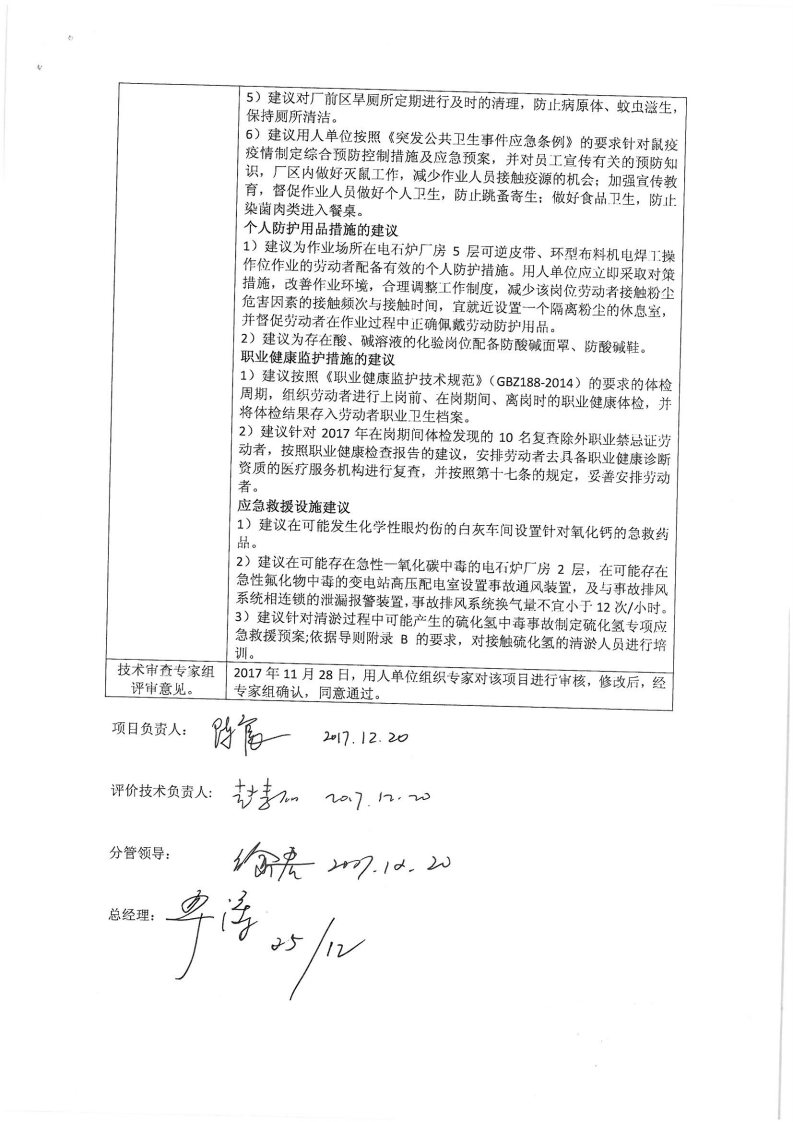 5）建议对厂前区旱厕所定期进行及时的清理，防止病原体、蚊虫滋生，
保持厕所清洁。
6）建议用人单位按照《突发公共卫生事件应急条例》的要求针对鼠疫
疫情制定综合预防控制措施及应急预案，并对员工宣传有关的预防知
识，厂区内做好灭鼠工作，减少作业人员接触疫源的机会；加强宣传教
育，督促作业人员做好个人卫生，防止跳蚤寄生；做好食品卫生，防止
染菌肉类进入餐桌。
个人防护用品措施的建议
1）建议为作业场所在电石炉厂房 5 层可逆皮带、环型布料机电焊工操
作位作业的劳动者配备有效的个人防护措施。用人单位应立即采取对策
措施，改善作业环境，合理调整工作制度，减少该岗位劳动者接触粉尘
危害因素的接触频次与接触时间，宜就近设置一个隔离粉尘的休息室，
并督促劳动者在作业过程中正确佩戴劳动防护用品。
2）建议为存在酸、碱溶液的化验岗位配备防酸碱面罩、防酸碱鞋。
职业健康监护措施的建议
1）建议按照《职业健康监护技术规范》（GBZ188-2014）的要求的体检
周期，组织劳动者进行上岗前、在岗期间、离岗时的职业健康体检，并
将体检结果存入劳动者职业卫生档案。
2）建议针对 2017 年在岗期间体检发现的 10 名复查除外职业禁忌证劳
动者，按照职业健康检查报告的建议，安排劳动者去具备职业健康诊断
资质的医疗服务机构进行复查，并按照第十七条的规定，妥善安排劳动
者。
应急救援设施建议
1）建议在可能发生化学性眼灼伤的白灰车间设置针对氧化钙的急救药
品。
2）建议在可能存在急性一氧化碳中毒的电石炉厂房 2 层，在可能存在
急性氟化物中毒的变电站高压配电室设置事故通风装置，及与事故排风
系统相连锁的泄漏报警装置，事故排风系统换气量不宜小于 12 次/小时。
3）建议针对清淤过程中可能产生的硫化氢中毒事故制定硫化氢专项应
急救援预案;依据导则附录 B 的要求，对接触硫化氢的清淤人员进行培
训。
技术审查专家组
评审意见。
2017 年 11 月 28 日，用人单位组织专家对该项目进行审核，修改后，经
专家组确认，同意通过。
项目负责人： 2017.12.20
评价技术负责人: 2017.12.20
分管领导： 2017.12.20
总经理： 25/12